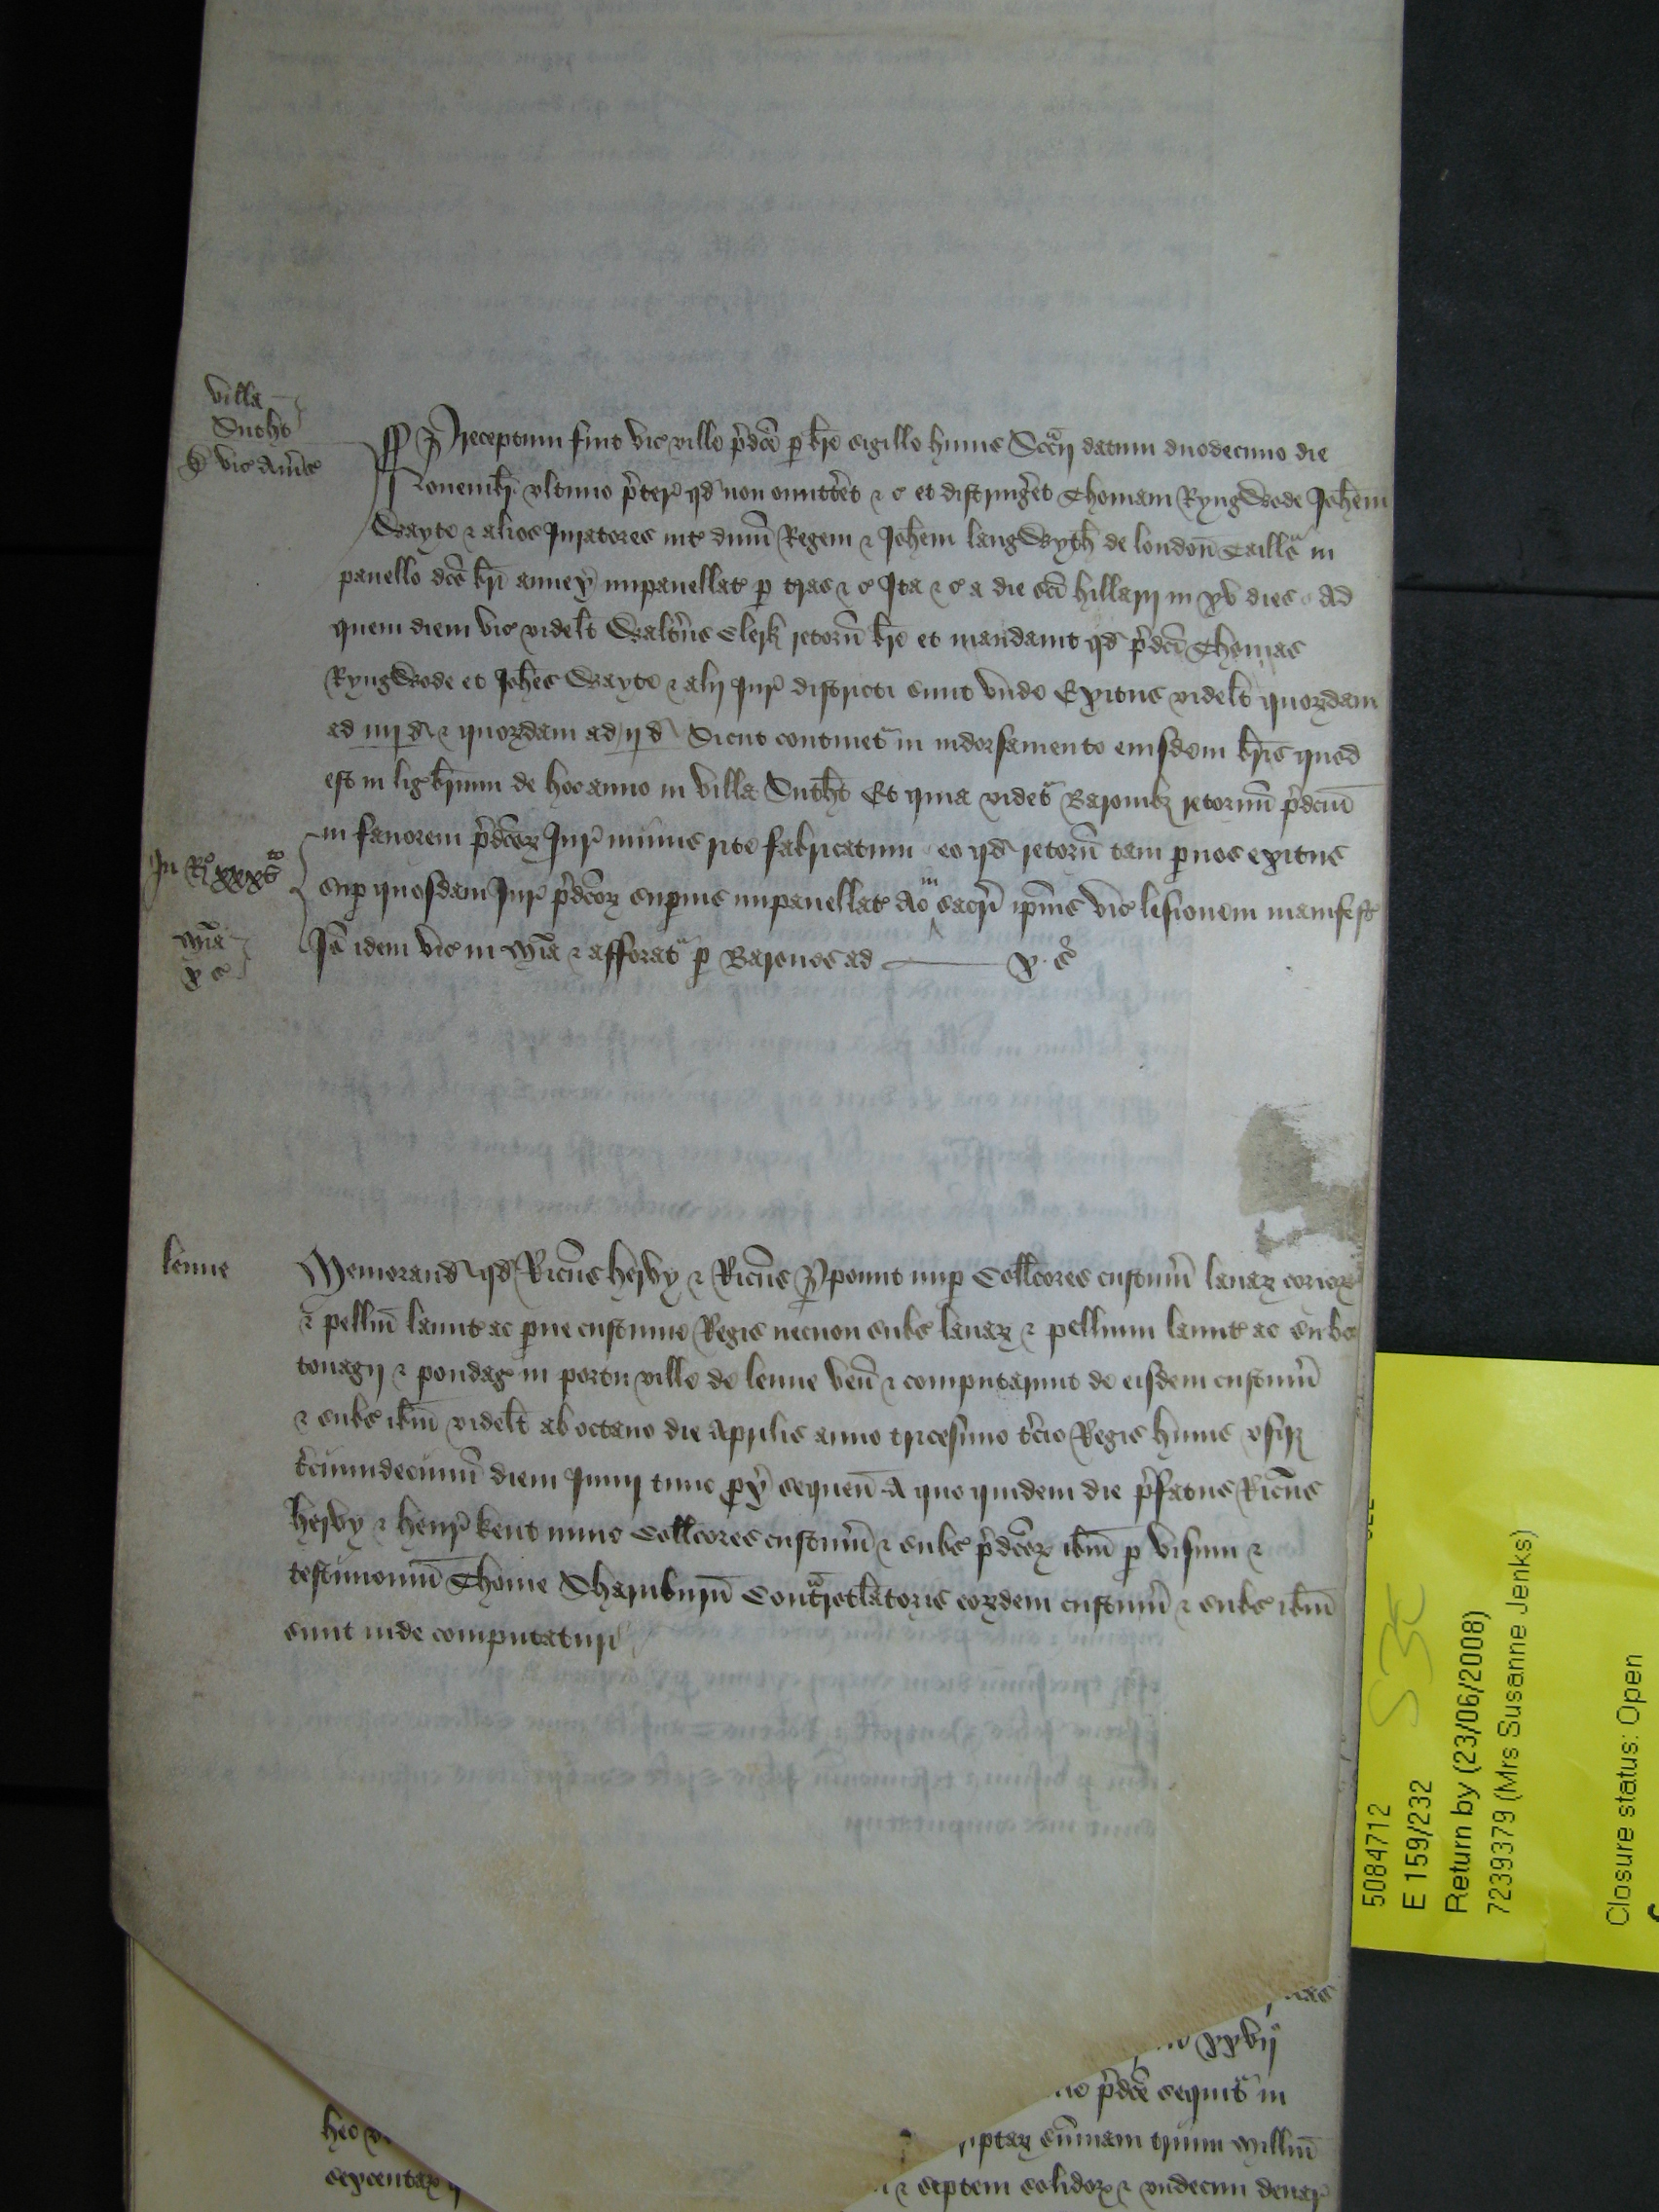 villa
Sutht
vic Amc
Preceptum fuit vic ville pdce p bre sigillo huius Sccij datum duodecimo die
Nouembr ultimo preter qd non omitteret & c et distringeret Thomam Ryngwode Johem
Wayte & alios Juratores int dnm Regem & Johem langwyth de london Taillo in
panello dco bri annex impanellat p tras & c Ita & c a die sci hillarij in xv dies Ad
quem diem vic videlt Walterus Clerk retorn bre et mandauit qd pdci Thomas
Ryngwode et Johes Wayte & alij Jur districti sunt unde Exitus videlt quorzdam
ad iiij d & quorzdam ad ij d Sicut continet in indorsamento eiusdem bris quod
est in lig brium de hoc anno in villa Sutht Et quia videt Baronibz retornu pdcum
in fauorem pdcorz Jur minus rite fabricatum eo qd retorn tam puos exitus
In Ro xxxto
sup quosdam Jur pdcorz supius impanellat Ac in sacri ipius vic lesionem manifest
mia
x s
Jo idem vic in mia & afforat p Barones ad x s
lenne
Memorand qd Ricus hervy & Ricus Ppount nup Collcores custum lanarz coriorz
& pelliu lanut ac pue custume Regis necnon subs lanarz & pellium lanut ac subs
tonagij & pondag in portu ville de lenne ven & computarunt de eisdem custum
& subs ibm videlt ab octauo die Aprilis anno tricesimo tcio Regis huius usqz
tciumdecimu diem Junij tunc px sequen A quo quidem die pfatus Ricus
hervy & henr kent nunc Collcores custum & subs pdcorz ibm p visum &
testimoniu Thome Sharnburn Contrarotlatoris eorzdem custum & subs ibm
sunt inde computaturi
xxvij
pdce sequit in
summam trium milliu
sexcentarz
& septem solidorz & undecim denar
5084712
S35
E 159/232
Return by (23/06/2008)
7239379 (Mrs Susanne Jenks)
Closure status: Open